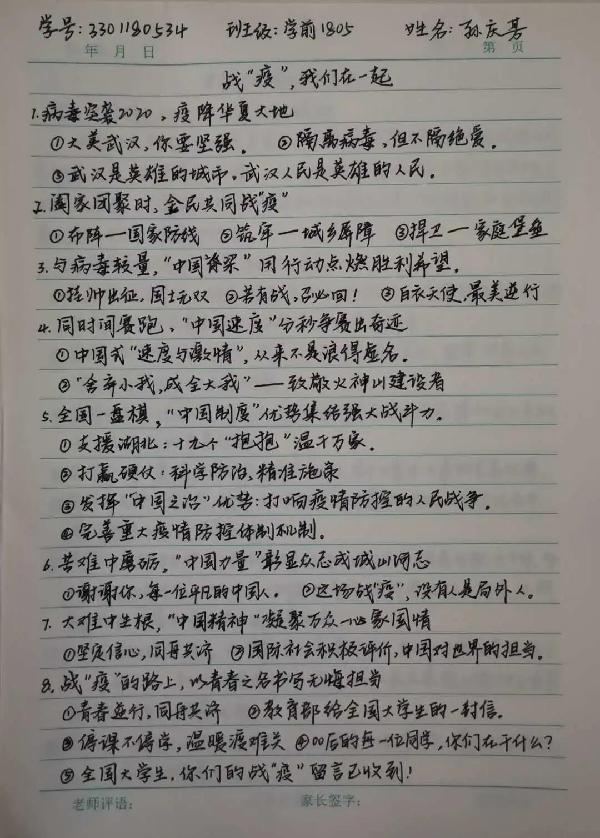 学号:3301180534 班级:学前1805 姓名:孙庆
年 月 日 第 页
战“疫”,我们在一起
1.病毒突袭2020,疫降华夏大地
①大美武汉,你要坚强。 ②隔离病毒,但不隔绝爱。
③武汉是英雄的城市,武汉人民是英雄的人民。
2.阖家团聚时,全民共同战“疫”
①布阵一国家防线 ②筑牢一城乡屏障 ③捍卫一家庭堡垒
3.与病毒较量,“中国脊梁”用行动点燃胜利希望。
①挂帅出征,国士无双 ②若有战,召必回! ③白衣天使,最美逆行
4.同时间赛跑,“中国速度”分秒争赛出奇迹
①中国式“速度与激情”,从来不是浪得虚名。
②“舍弃小我,成全大我”——致敬火神山建设者
5.全国一盘棋,“中国制度”优势集结强大战斗力。
①支援湖北:十九个“抱抱”温千万家。
②打赢硬仗:科学防治,精准施策
③发挥“中国之治”优势:打响疫情防控的人民战争。
④完善重大疫情防控体制机制。
6.苦难中磨砺,“中国力量”彰显众志成城山河志
①谢谢你,每一位平凡的中国人。 ②这场战“疫”,没有人是局外人。
7.大难中生根,“中国精神”凝聚万众一心家国情
①坚定信心,同舟共济 ②国际社会积极评价,中国对世界的担当。
8.战“疫”的路上,以青春之名书写无悔担当
①青春逆行,同舟共济 ②教育部给全国大学生的一封信。
③停课不停学,温暖渡难关 ④00后的每一位同学,你们在干什么?
⑤全国大学生,你们的战“疫”留言已收到!
老师评语: 家长签字: